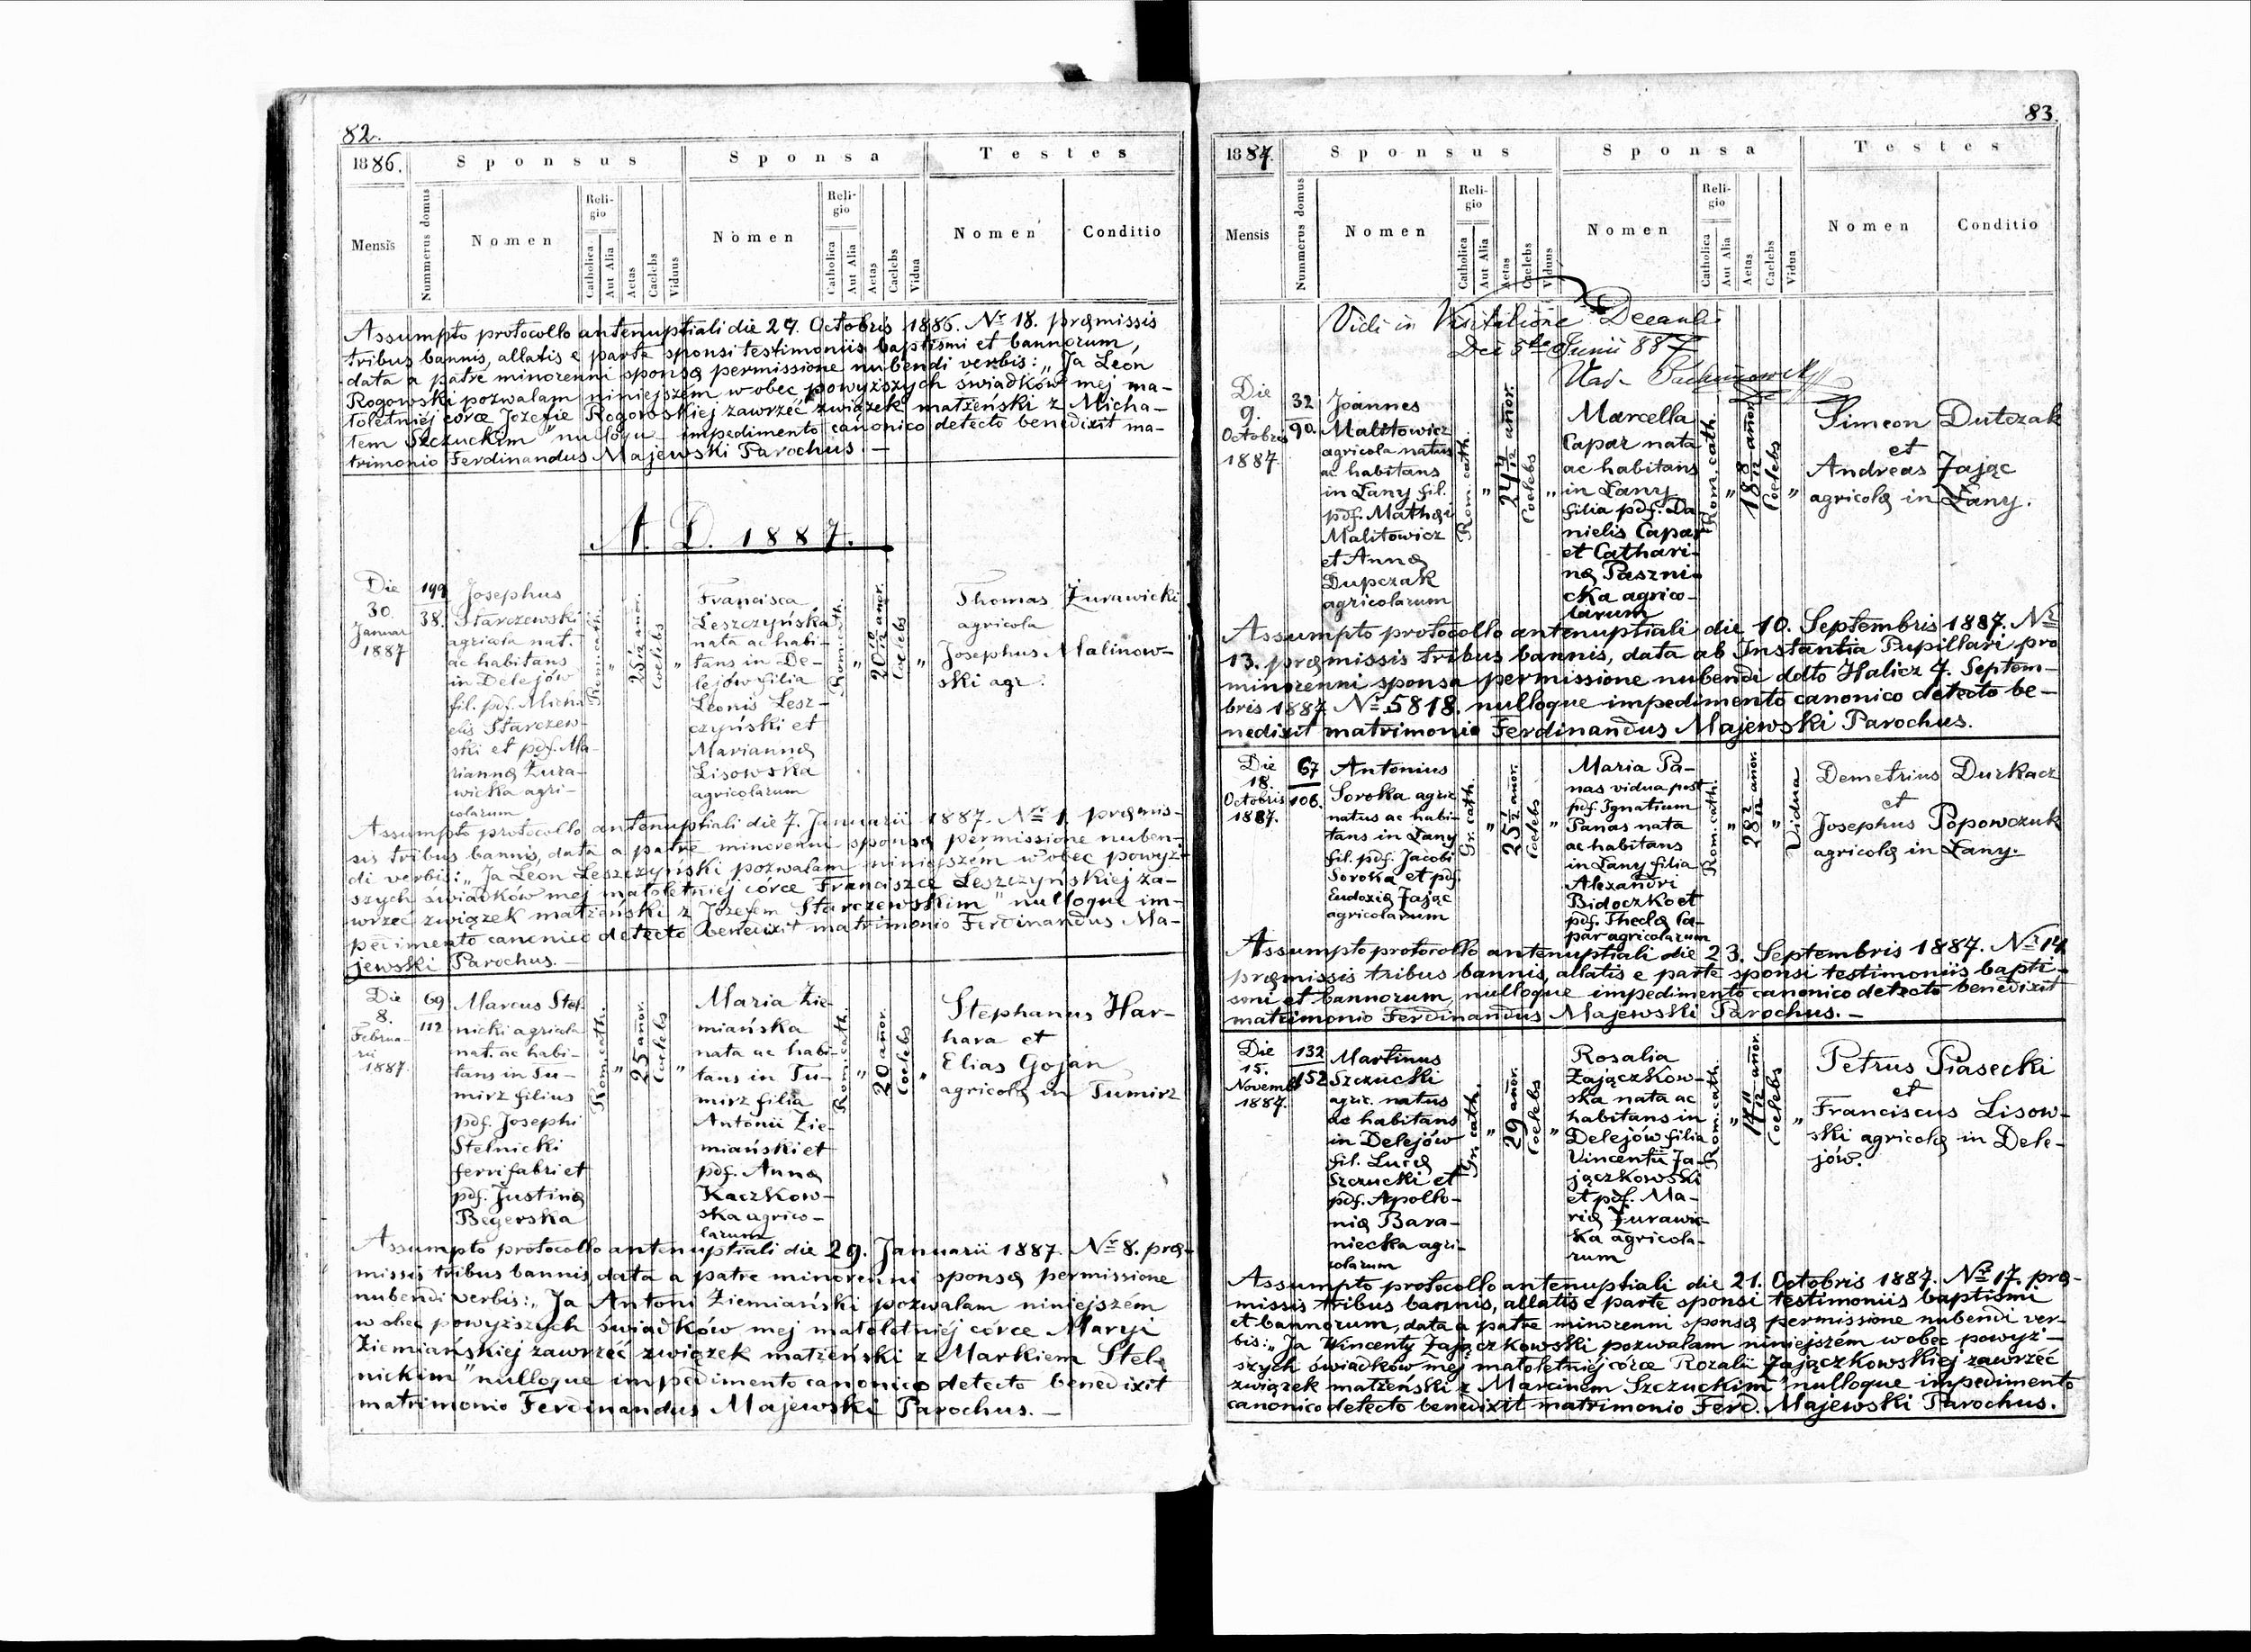 82.
1886.
Sponsus
Sponsa
Testes
Mensis
Nummerus domus
Nomen
Religio
Catholica
Aut Alia
Aetas
Caelebs
Viduus
Nomen
Religio
Catholica
Aut Alia
Aetas
Caelebs
Vidua
Nomen
Conditio
Assumpto protocollo antenuptiali die 27. Octobris 1886. Nr 18. præmissis
tribus bannis, allatis e parte sponsi testimoniis baptismi et bannorum,
data a patre minorenni sponsæ permissione nubendi verbis: „Ja Leon
Rogowski pozwalam niniejszém w obec powyższych świadków mej ma-
łoletniéj córce Jozefie Rogowskiej zawrzéć związek małżeński z Micha-
łem Szczuckim" nulloqu impedimento canonico detecto benedixit ma-
trimonio Ferdinandus Majewski Parochus. —
A. D. 1887.
Die
30.
Januar
1887
199
38.
Josephus
Starczewski
agricola nat.
ac habitans
in Delejów
fil. pdf. Micha
elis Starczew-
ski et pdf. Ma-
riannæ Żura-
wicka agri-
colarum
Rom. cath.
"
25 1/12 añor.
Coelebs
"
Francisca
Leszczyńska
nata ac habi-
tans in De-
lejów filia
Leonis Lesz-
czyński et
Mariannæ
Lisowska
agricolarum
Rom. cath.
"
20 10/12 añor.
Coelebs
"
Thomas Żurawicki
agricola
Josephus Malinow-
ski agr.
Assumpto protocollo antenuptiali die 7. Januarii 1887. Nr 1. præmis-
sis tribus bannis, data a patre minorenni sponsæ permissione nuben-
di verbis: „Ja Leon Leszczyński pozwalam niniejszém w obec powyż-
szych świadków mej małoletniéj córce Franciszce Leszczyńskiej za-
wrzéć związek małżeński z Józefem Starczewskim" nulloque im-
pedimento canonico detecto benedixit matrimonio Ferdinandus Ma-
jewski Parochus. —
Die
8.
Februa-
rii
1887.
69
112
Marcus Stel-
nicki agricola
nat. ac habi-
tans in Tu-
mirz filius
pdf. Josephi
Stelnicki
ferrifabri et
pdf. Justinæ
Begerska
Rom. cath.
"
25 añor.
Coelebs
"
Maria Zie-
miańska
nata ac habi-
tans in Tu-
mirz filia
Antonii Zie-
miański et
pdf. Annæ
Kaczkow-
ska agrico-
larum
Rom. cath.
"
20 añor.
Coelebs
"
Stephanus Har-
hara et
Elias Gojan
agricolæ in Tumirz
Assumpto protocollo antenuptiali die 29. Januarii 1887. Nr 8. præ-
missis tribus bannis, data a patre minorenni sponsæ permissione
nubendi verbis: „Ja Antoni Ziemiański pozwalam niniejszém
w obec powyższych świadków mej małoletniéj córce Maryi
Ziemiańskiej zawrzéć związek małżeński z Markiem Stel-
nickim" nulloque impedimento canonico detecto benedixit
matrimonio Ferdinandus Majewski Parochus. —
83.
1887.
Sponsus
Sponsa
Testes
Mensis
Nummerus domus
Nomen
Religio
Catholica
Aut Alia
Aetas
Caelebs
Viduus
Nomen
Religio
Catholica
Aut Alia
Aetas
Caelebs
Vidua
Nomen
Conditio
Vidi in Visitatione Decanali
Dei 5ta Junii 887
Die
9.
Octobris
1887
32
90.
Joannes
Malitowicz
agricola natus
ac habitans
in Łany fil.
pdf. Mathæi
Malitowicz
et Annæ
Dupczak
agricolarum
Rom. cath.
"
24 4/12 añor.
Coelebs
"
Marcella
Capar nata
ac habitans
in Łany
filia pdf. Da
nielis Capar
et Cathari-
næ Paszni-
cka agrico-
larum
Rom. cath.
"
18 8/12 añor.
Coelebs
"
Simeon Dutczak
et
Andreas Zając
agricolæ in Łany.
Assumpto protocollo antenuptiali die 10. Septembris 1887. Nr
13. præmissis tribus bannis, data ab Instantia Pupillari pro
minorenni sponsa permissione nubendi ddto Halicz 7. Septem-
bris 1887 Nr 5818. nulloque impedimento canonico detecto be-
nedixit matrimonio Ferdinandus Majewski Parochus.
Die
18.
Octobris
1887.
67
106.
Antonius
Soroka agric
natus ac habi-
tans in Łany
fil. pdf. Jacobi
Soroka et pdf.
Eudoxiæ Zając
agricolarum
Gr. cath.
"
25 1/12 añor.
Coelebs
"
Maria Pa-
nas vidua post
pdf. Ignatium
Panas nata
ac habitans
in Łany filia
Alexandri
Bidoczko et
pdf. Theclæ Ca-
par agricolarum
Rom. cath.
"
28 2/12 añor.
"
Vidua
Demetrius Durkacz
et
Josephus Popowczuk
agricolæ in Łany.
Assumpto protocollo antenuptiali die 23. Septembris 1887. Nr 14
præmissis tribus bannis, allatis e parte sponsi testimoniis bapti-
smi et bannorum, nulloque impedimento canonico detecto benedixit
matrimonio Ferdinandus Majewski Parochus. —
Die
15.
Novemb
1887.
132
152
Martinus
Szczucki
agric. natus
ac habitans
in Delejów
fil. Lucæ
Szczucki et
pdf. Apollo-
niæ Bara-
niecka agri-
colarum
Gr. cath.
"
29 añor.
Coelebs
"
Rosalia
Zajączkow-
ska nata ac
habitans in
Delejów filia
Vincentii Za-
jączkowski
et pdf. Ma-
riæ Żurawic-
ka agricola-
rum
Rom. cath.
"
17 11/12 añor.
Coelebs
"
Petrus Piasecki
et
Franciscus Lisow-
ski agricolæ in Dele-
jów.
Assumpto protocollo antenuptiali die 21. Octobris 1887. Nr 17. præ-
missis tribus bannis, allatis e parte sponsi testimoniis baptismi
et bannorum, data a patre minorenni sponsæ permissione nubendi ver-
bis: „Ja Wincenty Zajączkowski pozwalam niniejszém w obec powyż-
szych świadków mej małoletniéj córce Rozalii Zajączkowskiej zawrzéć
związek małżeński z Marcinem Szczuckim" nulloque impedimento
canonico detecto benedixit matrimonio Ferd. Majewski Parochus.